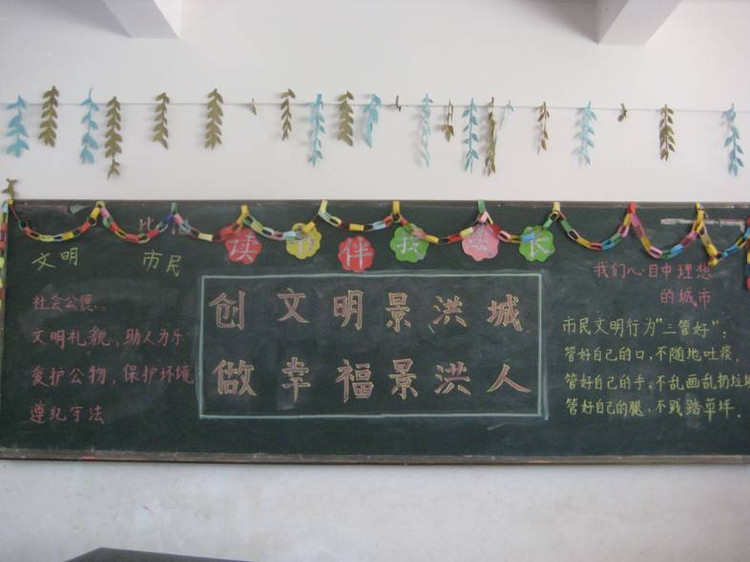 读书伴我成长
文明 市民
社会公德
文明礼貌，助人为乐
爱护公物，保护环境
遵纪守法
创文明景洪城
做幸福景洪人
我们心目中理想
的城市
市民文明行为“三管好”：
管好自己的口，不随地吐痰，
管好自己的手，不乱画乱扔垃圾
管好自己的腿，不践踏草坪。